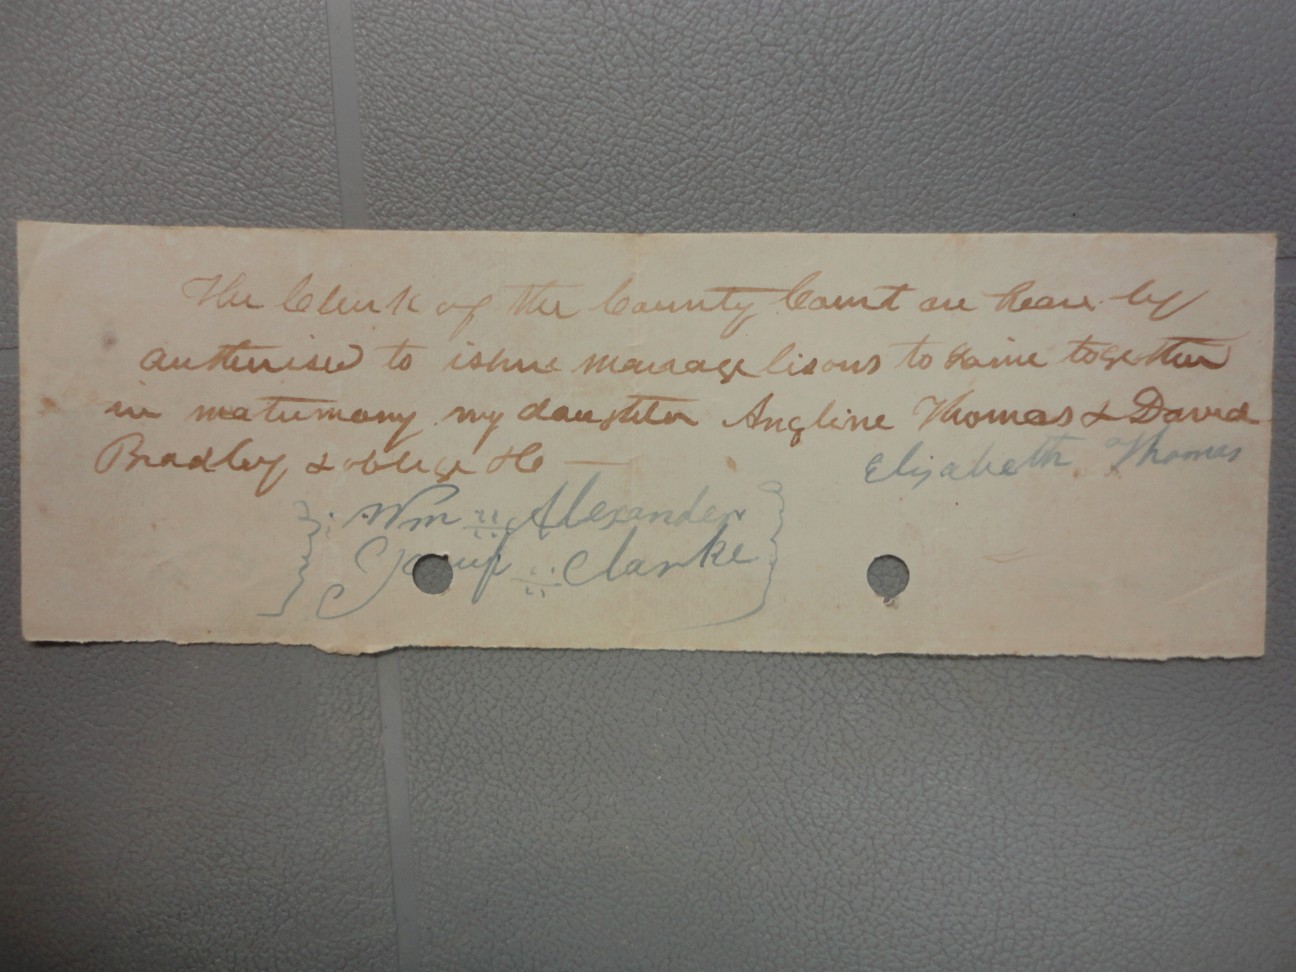 The Clerk of the County Court are heare by
autherised to ishue marage lisons to Joine together
in matrimony my daughter Angline Thomas & David
Bradley & oblige &c
Elisabeth Thomas
Wm Alexander
Clarke